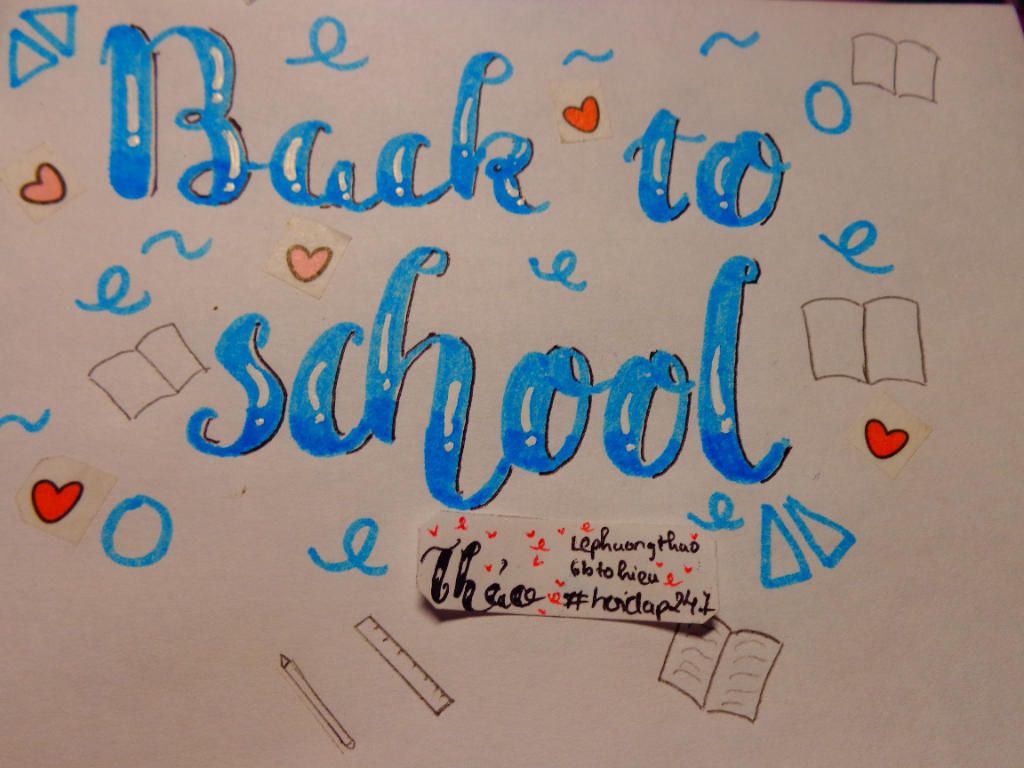 Back to
school
Thảo
Lephuongthao
6btohieu
#hoidap247